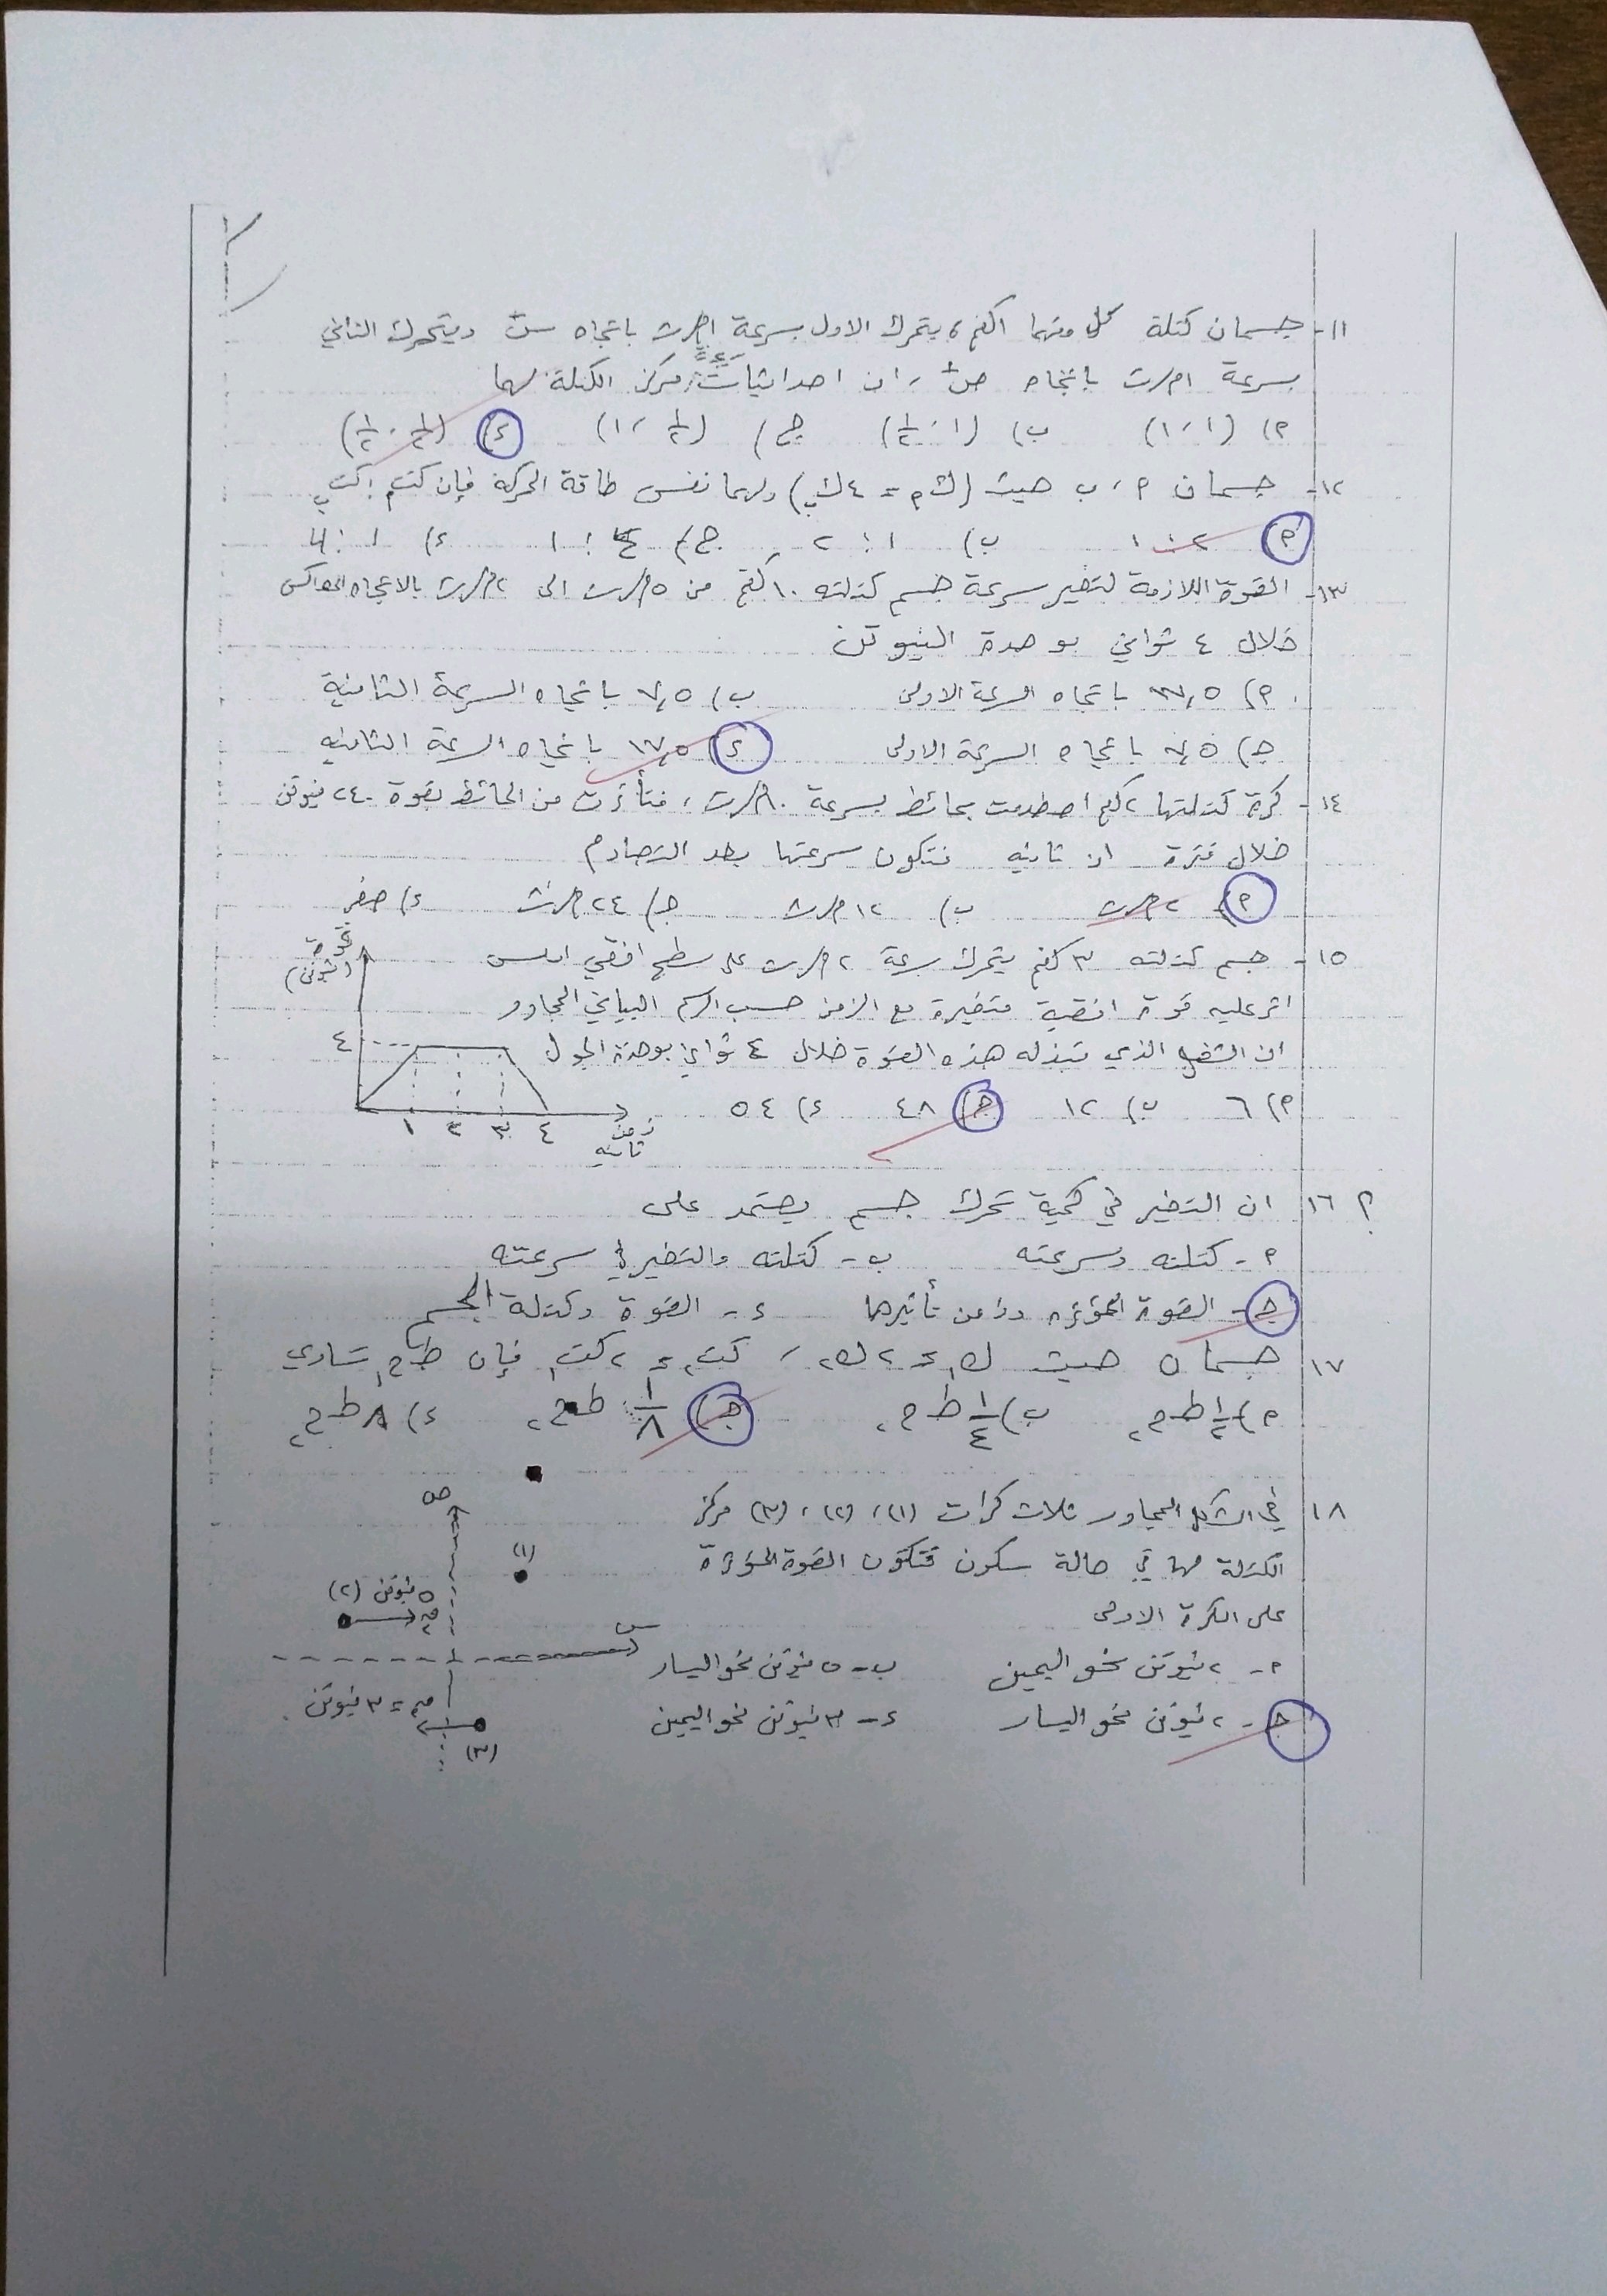 ١١- جسمان كتلة كل منهما ١كغم، يتحرك الاول بسرعة ١م/ث باتجاه س+ ويتحرك الثاني
بسرعة ١م/ث باتجاه ص+ ، ان احداثيات سرعة مركز الكتلة لهما
م) (١،١) ب) (١، ١/٢) ج) (١/٢، ١) د) (١/٢، ١/٢)
١٢- جسمان م، ب حيث (ك م = ٤ك ب) ولهما نفس طاقة الحركة فإن كت م : كت ب
م) ٢ : ١ ب) ١ : ٢ ج) ٤ : ١ د) ١ : ٤
١٣- القوة اللازمة لتغير سرعة جسم كتلته ١٠كغم من ٥م/ث الى ٢م/ث بالاتجاه المعاكس
خلال ٤ ثواني بوحدة النيوتن
م) ١٧,٥ باتجاه السرعة الاولى ب) ٧,٥ باتجاه السرعة الثانية
ج) ٧,٥ باتجاه السرعة الاولى د) ١٧,٥ باتجاه السرعة الثانيه
١٤- كرة كتلتها ٢كغم اصطدمت بحائط بسرعة ١٠م/ث ، فتأثرت من الحائط بقوة ٢٤٠ نيوتن
خلال فترة ٠,١ ثانيه فتكون سرعتها بعد التصادم
م) ٢م/ث ب) ١٢م/ث ج) ٢٤م/ث د) صفر
١٥- جسم كتلته ٣كغم يتحرك سرعة ٢م/ث على سطح افقي املس
اثر عليه قوة افقية متغيرة مع الزمن حسب الرسم البياني المجاور
ان الشغل الذي تبذله هذه القوة خلال ٤ ثواني بوحدة الجول
م) ٦ ب) ١٢ ج) ٤٨ د) ٥٤
قوة
(نيوتن)
٤
١ ٢ ٣ ٤
زمن
ثانيه
م ١٦ ان التغير في كمية تحرك جسم يعتمد على
م- كتلته وسرعته ب- كتلته والتغير في سرعته
ج- القوة المؤثرة وزمن تأثيرها د- القوة وكتلة الجسم
١٧ جسمان حيث ك١ = ٢ك٢ ، كت٢ = ٢كت١ فإن طح١ تساوي
م) ١/٢ طح٢ ب) ١/٤ طح٢ ج) ١/٨ طح٢ د) ٨طح٢
١٨ في الشكل المجاور ثلاث كرات (١)، (٢)، (٣) مركز
الكتلة لها في حالة سكون فتكون القوة المؤثرة
على الكرة الاولى
م- ٢ نيوتن نحو اليمين ب- ٥ نيوتن نحو اليسار
ج- ٢ نيوتن نحو اليسار د- ٣ نيوتن نحو اليمين
ص
(١)
٥ نيوتن (٢)
س
= ٣ نيوتن
(٣)